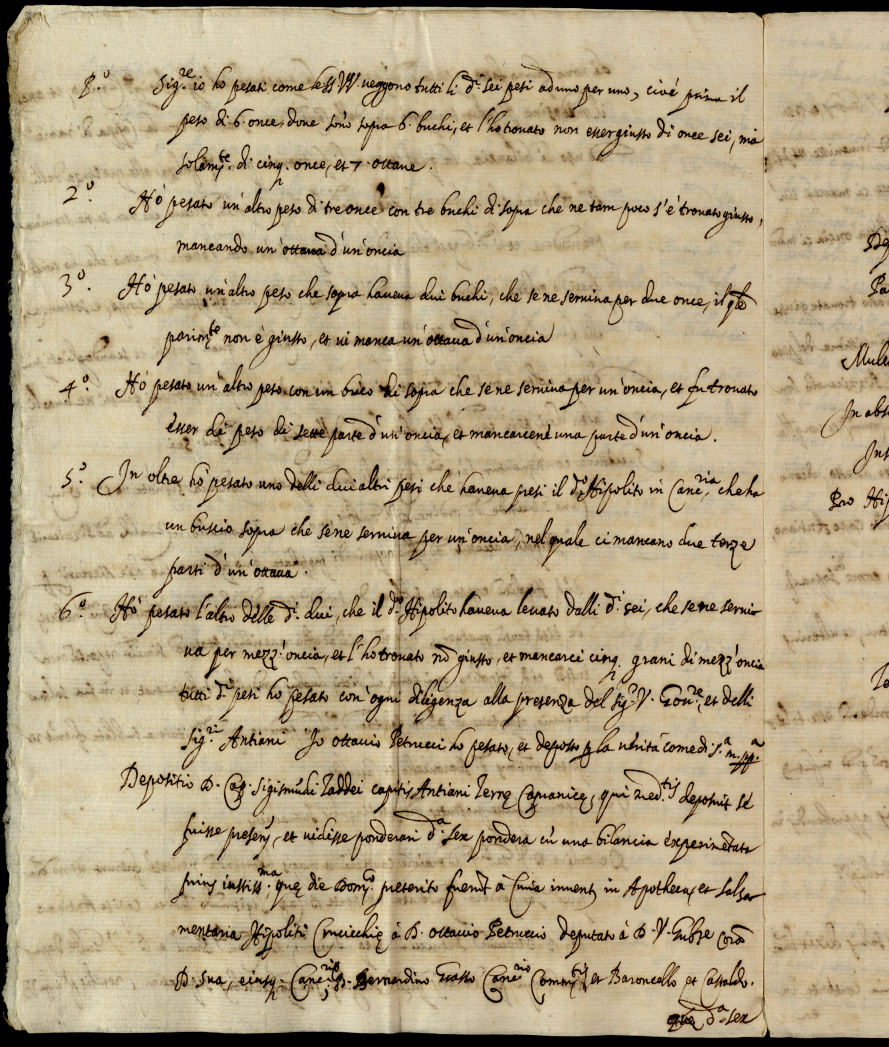 P.º Sig.re io ho pesati come le SS VV. veggono tutti li d.i sei pesi ad uno per uno, cioè prima il
peso di 6. once, dove sono sopra 6. buchi, et l'ho trovato non esser giusto di once sei, mà
solam.te di cinq. once, et 7 ottave.
2.º Hò pesato un'altro peso di tre once con tre buchi di sopra che ne tam poco s'è trovato giusto,
mancando un'ottava d'un'oncia
3.º Hò pesato un'altro peso che sopra haveva dui buchi, che se ne serviva per due once, il qle
parim.te non è giusto, et vi manca un'ottava d'un'oncia
4.º Hò pesato un'altro peso con un buco di sopra che se ne serviva per un'oncia, et fu trovato
esser di peso di sette parte d'un'oncia, et mancarcene una parte d'un'oncia.
5.º In oltre hò pesato uno delli dui altri pesi che haveva presi il d.º Hipolito in Canc.ria, che ha
un buscio sopra che se ne serviva per un'oncia, nel quale ci mancano due terze
parti d'un'ottava.
6.º Hò pesato l'altro delle d.i dui, che il d.º Hipolito haveva levato dalli d.i sei, che se ne servi-
va per mezz'oncia, et l'ho trovato nõ giusto, et mancarci cinq. grani di mezz'oncia
tutti d.i pesi ho pesato con ogni diligenza alla presenza del sig.r V. Gov.re, et delli
Sig.ri Antiani Io ottavio Petrucci ho pesato, et deposto p la verità come di s.a m. pp.a
Depositio D. Cap. Sigismũdi Taddei capitis Antiani Terrę Capranicę, qui med.tis deposuit se
fuisse presens, et vidisse ponderari d.a sex pondera cũ una bilancia experimẽtata
prius iustiss.ma, quę die Dom.co preterito fuerũt à Curia invent. in Apotheca, et salsa-
mentaria Hippoliti Crucicchię à D. ottavio Petruccio deputato à D. V. Gubre corã
D. sua, eiusq. Canc.rio, D. Bernardino Grasso Canc.rio Comm.tis et Baroncello et Castaldo.
quę d.a sex